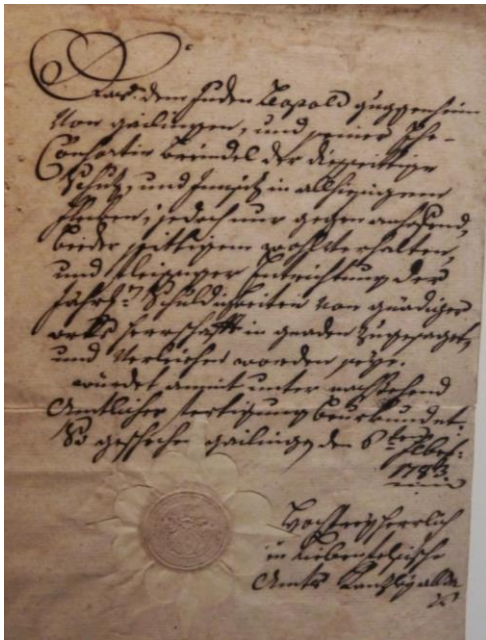 Daß dem Juden Leopold Guggenheim
von Gailingen, und seiner Ehe-
Consortin Breindel der disseittige
Schutz, und Innsitz in allhiesigem
Fleken, jedoch nur gegen
beeder seittigem wohlverhalten,
und fleissiger Entrichtung der
Jährl: Schuldigkeiten von gnädiger
orths Herrschafft in gnaden zugesaget,
und verliehen worden seye.
würdet anmit unter nachstehend
Amtlicher fertigung beurkundet.
So geschehen Gailingen den 6ten
1783.
Hochfreyherrlich
Liebenfelsische
Amts Kanzley allda